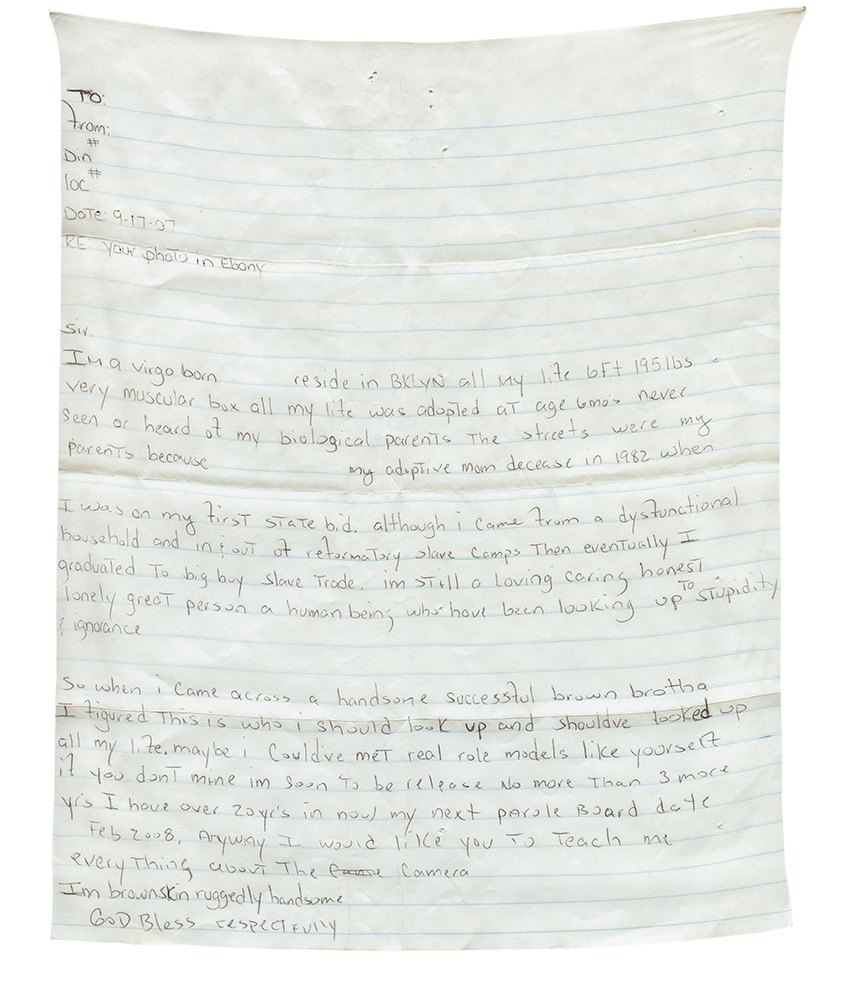 TO:
From:
Din #
loc #
DATE: 9-17-07
RE your photo in Ebony
Sir.
Im a virgo born reside in BKLYN all my life 6Ft 195 lbs
very muscular box all my life was adopted at age 6mo's never
seen or heard of my biological parents The streets were my
parents because my adoptive mom decease in 1982 when
I was on my first state bid. although i came from a dysfunctional
household and in & out of reformatory slave camps Then eventually I
graduated To big boy slave Trade. im still a loving caring honest
lonely great person a human being who have been looking up TO stupidity
& ignorance
So when i came across a handsome successful brown brotha
I figured This is who i should look up and shouldve looked up
all my life, maybe i Could've met real role models like yourself
if you dont mine im soon To be release No more Than 3 more
yrs I have over 20yr's in now my next parole Board date
Feb 2008. Anyway I would like you To Teach me
everyThing about The Camera
Im brownskin ruggedly handsome
GOD Bless respectfully